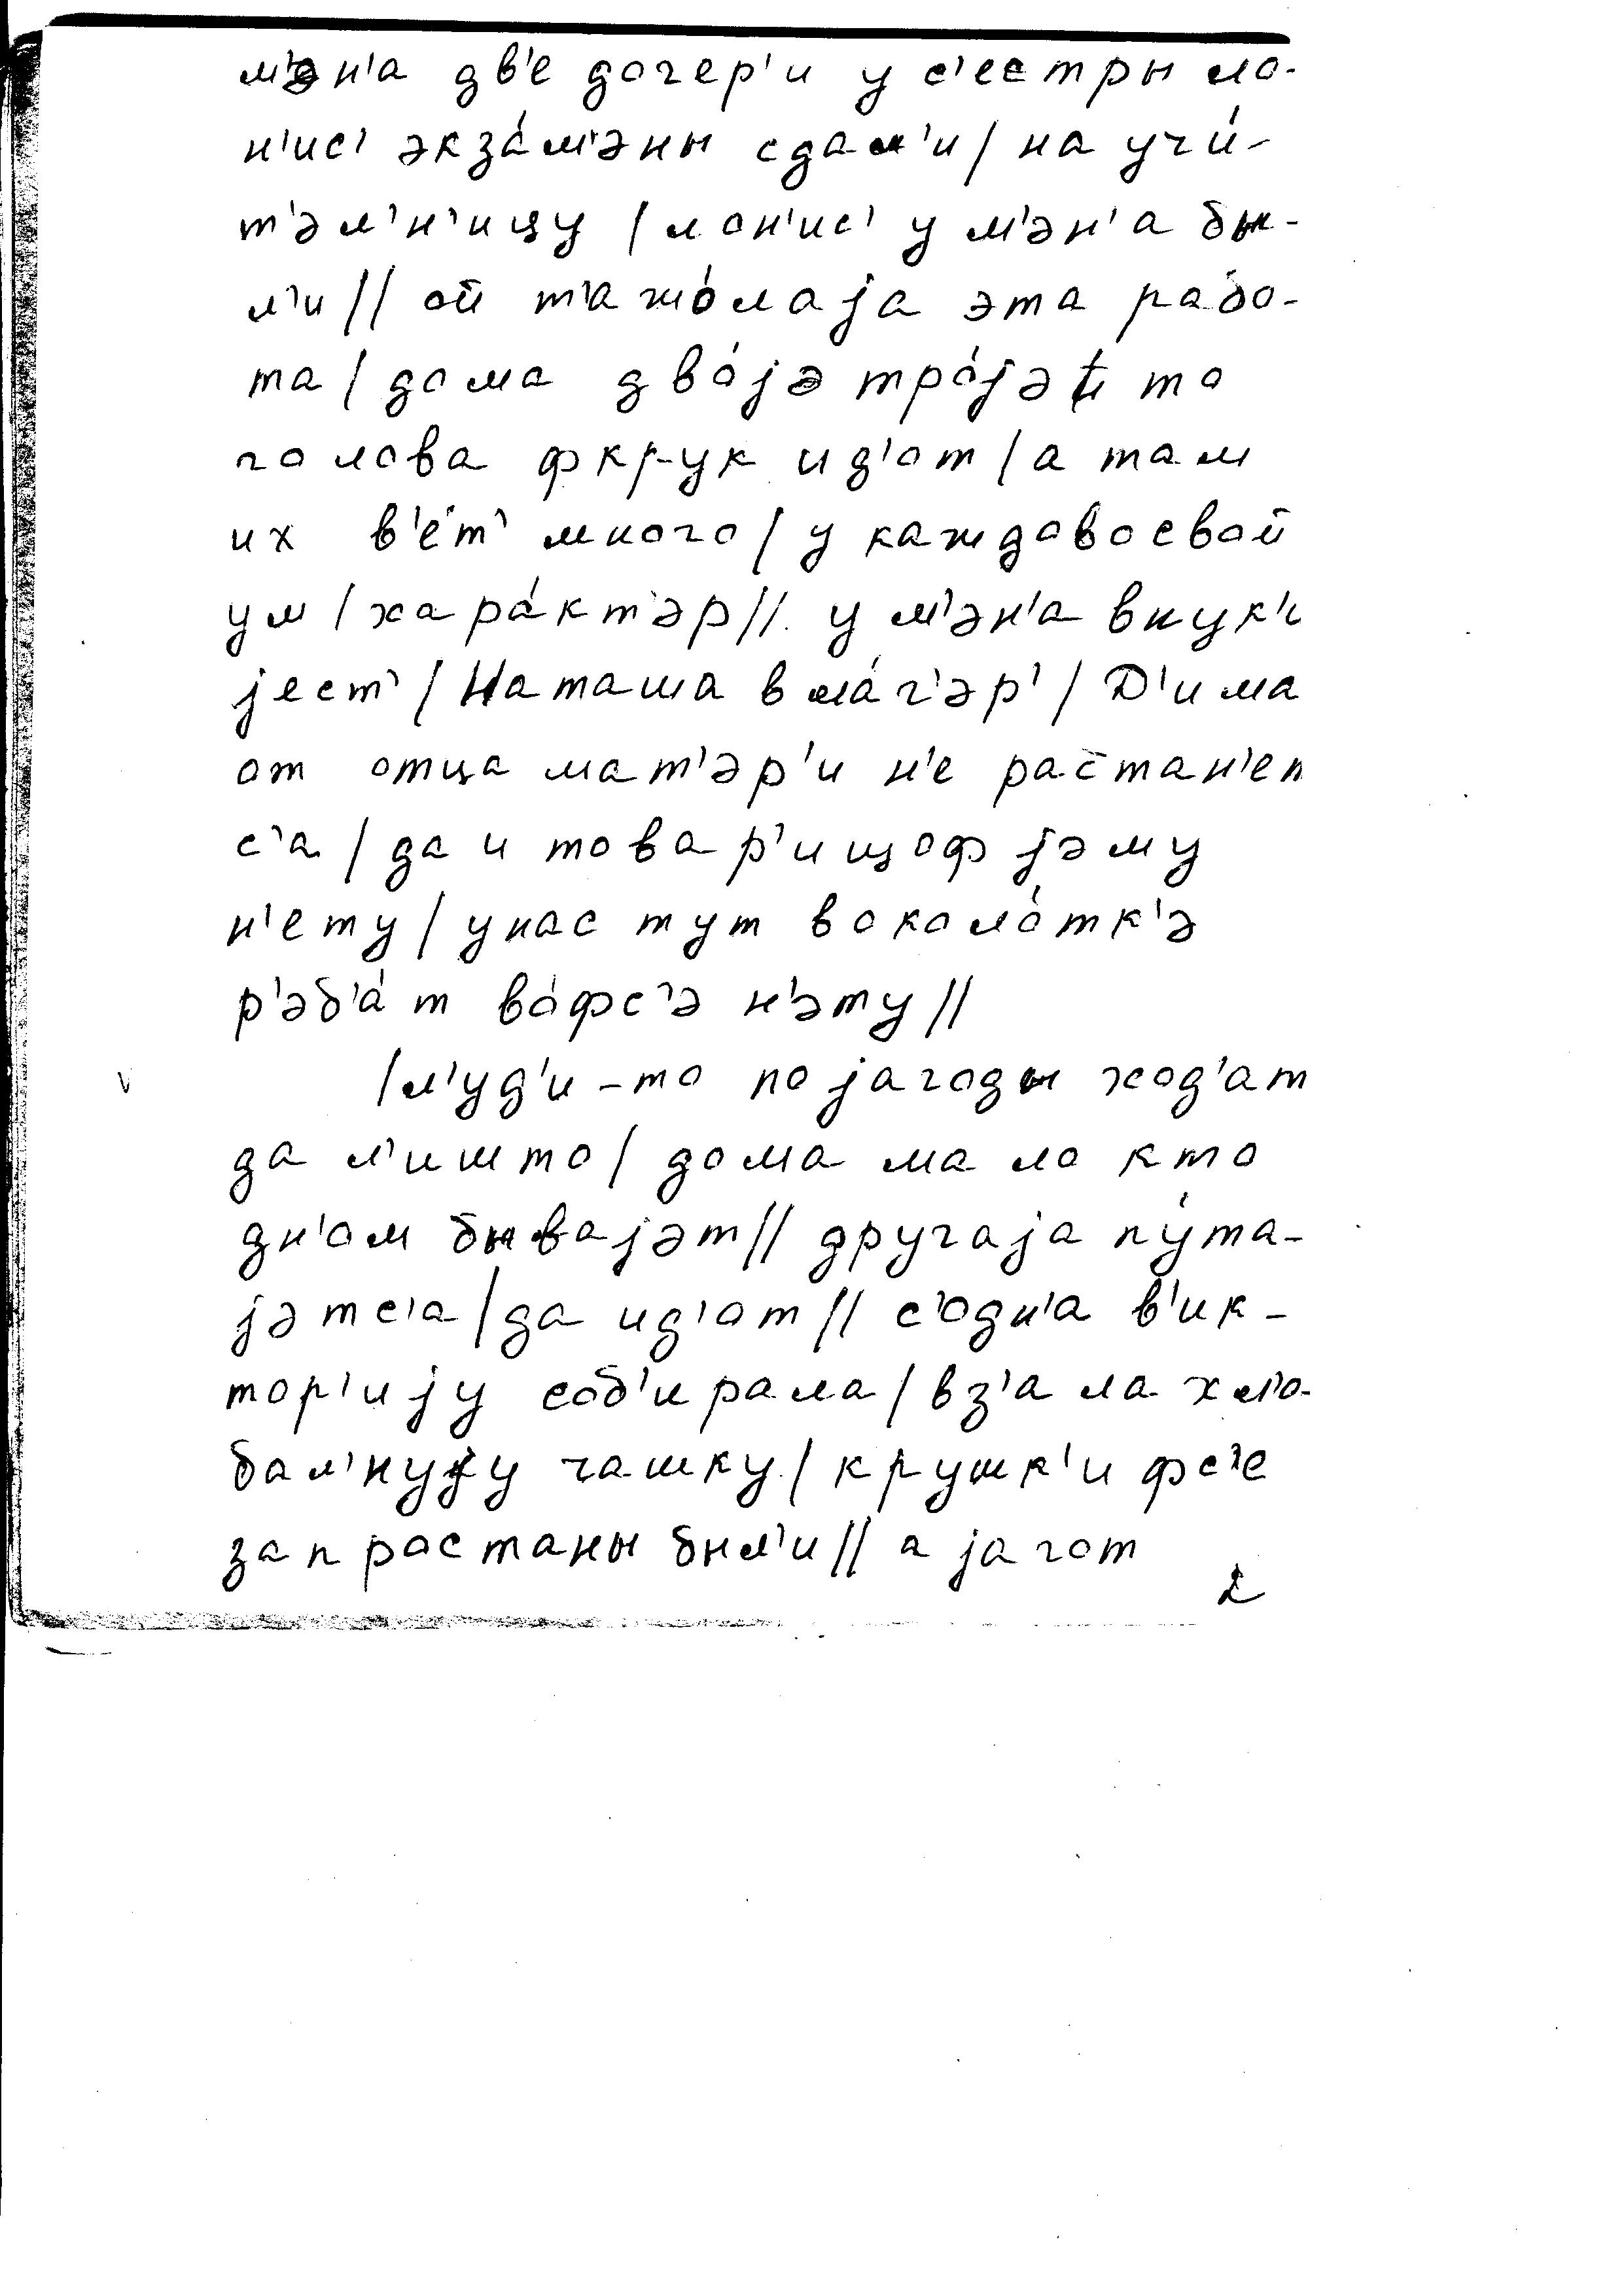 м'эн'а дв'е дочер'и у с'естры ло-
н'ис' экза́м'эны сдал'и / на учи́-
т'эл'н'ицу / лон'ис' у м'эн'а бы-
л'и // ой т'ажо́лаjа эта рабо-
та / дома дво́jэ тро́jэ и то
голова фкрук ид'от / а там
их в'е́т' много / у каждово свой
ум / хара́кт'эр // у м'эн'а внук'и
jест' / Наташа в ла́г'эр' / Д'има
от отца мат'эр'и н'е растан'ет
с'а / да и товар'ищоф jэму
н'ету / у нас тут в около́тк'э
р'эб'а́т во́фс'э н'эту //
/ л'уд'и-то по jагоды ход'ат
да л'ишто / дома мало кто
дн'ом бываjэт // другаjа пу́та-
jэтс'а / да ид'от // с'одн'а в'ик-
тор'иjу соб'ирала / вз'ала хл'о-
бал'нуjу чашку / крушк'и фс'е
запростаны был'и // а jагот
2